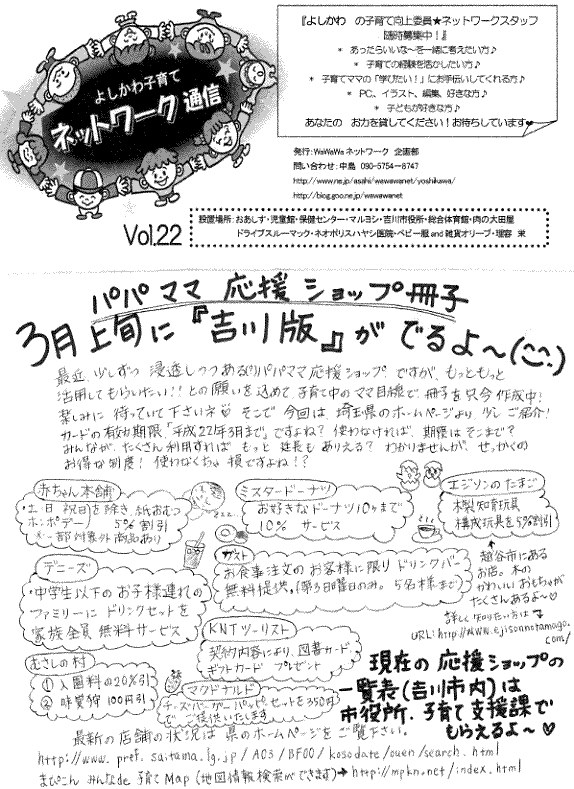 よしかわ子育て
ネットワーク通信
Vol.22
『よしかわ の子育て向上委員★ネットワークスタッフ
随時募集中！』
* あったらいいな~を一緒に考えたい方♪
* 子育ての経験を活かしたい方♪
* 子育てママの「学びたい！」にお手伝いしてくれる方♪
* PC、イラスト、編集、好きな方♪
* 子どもが好きな方♪
あなたの お力を貸してください！お待ちしています♥
発行：WaWaWaネットワーク 企画部
問い合わせ：中島 090-5754-8747
http://www.ne.jp/asahi/wawawanet/yoshikawa/
http://blog.goo.ne.jp/wawawanet
設置場所：おあしす・児童館・保健センター・マルヨシ・吉川市役所・総合体育館・肉の大田屋
ドライブスルーマック・ネオポリスハヤシ医院・ベビー服and雑貨オリーブ・理容 栄
パパママ応援ショップ冊子
3月上旬に『吉川版』がでるよ~(^^)
最近、少しずつ浸透しつつある(?)パパママ応援ショップですが、もっともっと
活用してもらいたい！！との願いを込めて、子育て中のママ目線で、冊子を只今作成中！
楽しみに待っていて下さいネ♡ そこで今回は、埼玉県のホームページより、少しご紹介！
カードの有効期限、「平成22年3月まで」ですよね？ 使わなければ、期限はそこまで？
みんなが、たくさん利用すれば もっと延長もありえる？ わかりませんが、せっかくの
お得な制度！ 使わなくちゃ損ですよね！？
赤ちゃん本舗
・土・日・祝日を除き、紙おむつ
ホンポデー 5%割引
※一部対象外商品あり
ミスタードーナツ
お好きなドーナツ10ヶまで
10% サービス
エジソンのたまご
木製知育玩具
構成玩具を5%割引
↑
越谷市にある
お店。木の
かわいいおもちゃが
たくさんあるよ~♡
詳しく知りたい方は
URL: http://www.ejisonnotamago.
com/
デニーズ
・中学生以下のお子様連れの
ファミリーにドリンクセットを
家族全員無料サービス
ガスト
お食事注文のお客様に限りドリンクバー
無料提供。(第3日曜日のみ。5名様まで)
KNTツーリスト
契約内容により、図書カード、
ギフトカード プレゼント
むさしの村
① 入園料の20%引
② 味覚狩 100円引
マクドナルド
チーズバーガーハッピーセットを350円
でご提供いたします
現在の応援ショップの
一覧表(吉川市内)は
市役所、子育て支援課で
もらえるよ~♡
最新の店舗の状況は県のホームページをご覧下さい。
http://www.pref.saitama.lg.jp/A03/BF00/kosodate/ouen/search.html
まぴこん みんなde子育てMap(地図情報検索ができます)→http://mpkn.net/index.html